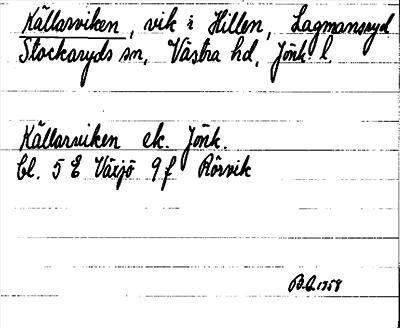 Källarviken, vik i Hillen, Lagmansryd
Stockaryds sn, Västra hd, Jönk. l.
Källarviken ek. Jönk.
bl. 5 E Växjö 9 f Rörvik
B.A. 1958